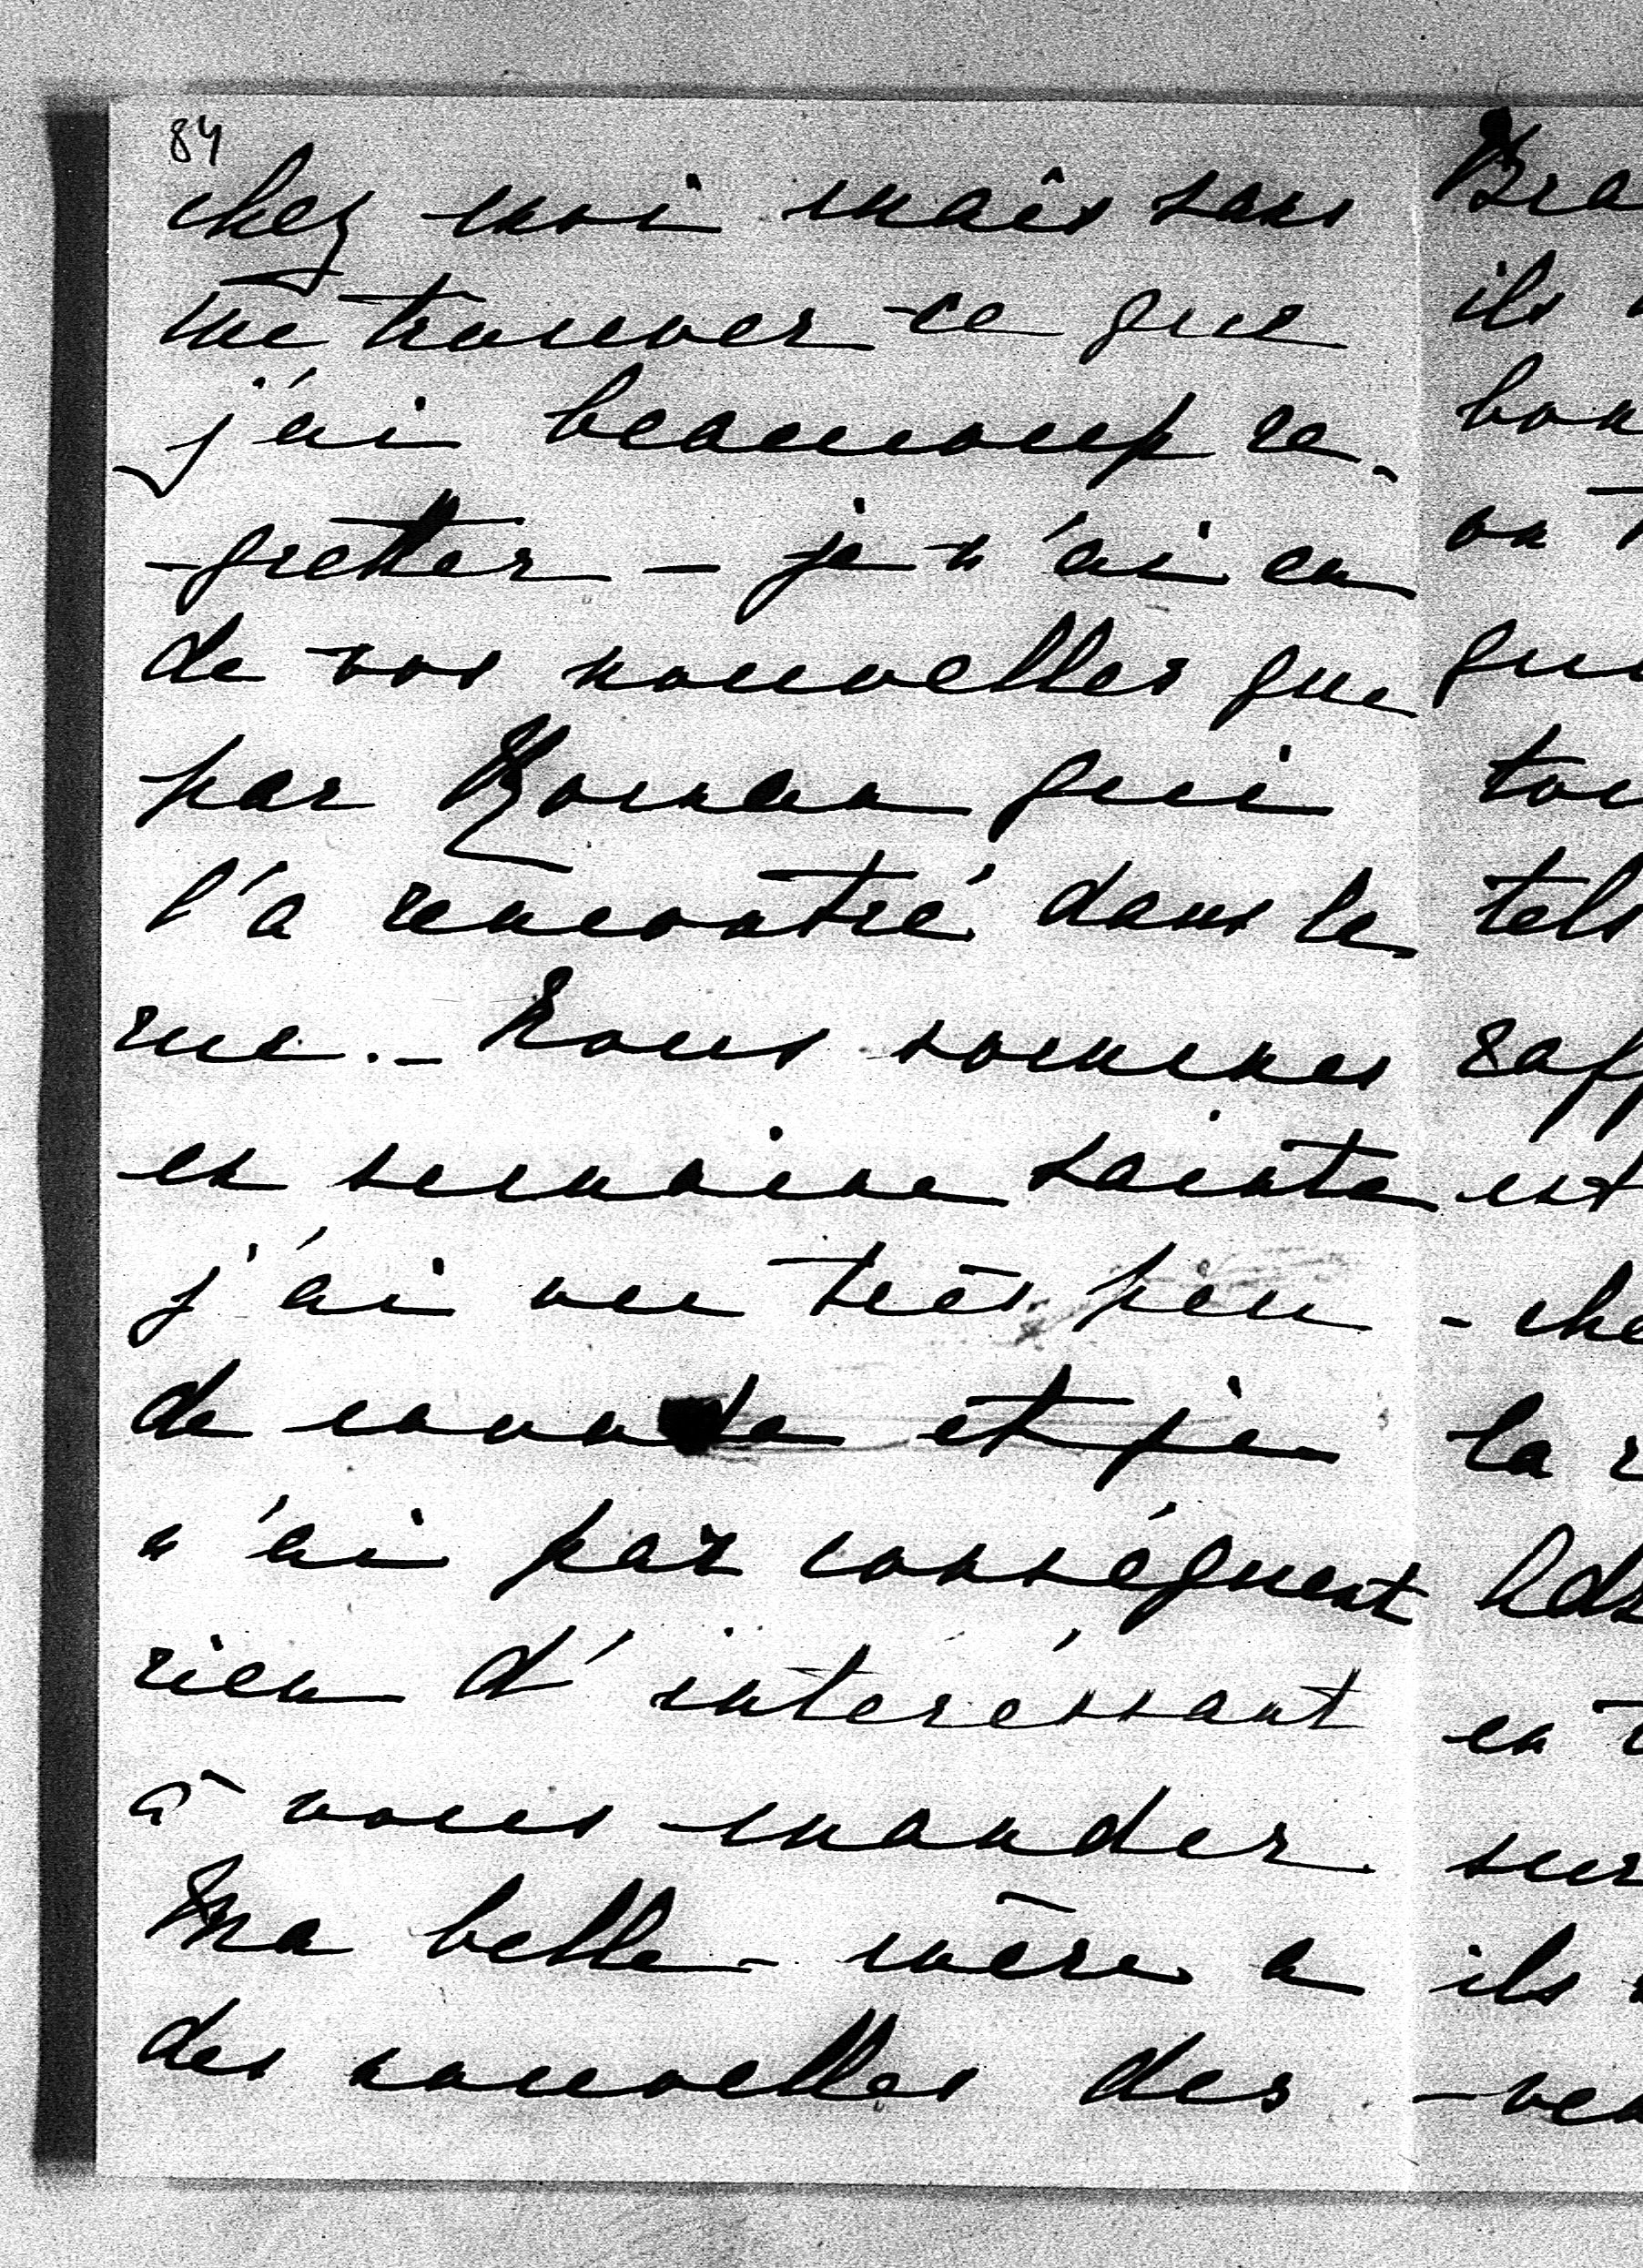 84
chez moi mais sans
me trouver ce que
j'ai beaucoup re-
-gretter - je n'ai eu
de vos nouvelles que
par Roman qui
l'a rencontré dans la
rue. - Nous sommes
en semaine sainte
j'ai vu très peu
de monde et je
n'ai par conséquent
rien d'intéréssant
à vous mander
Ma belle-mère a
des nouvelles des
Bra
ils
bon
on
qui
tou
tels
raff
est
- che
la
en
sur
ils
-ven